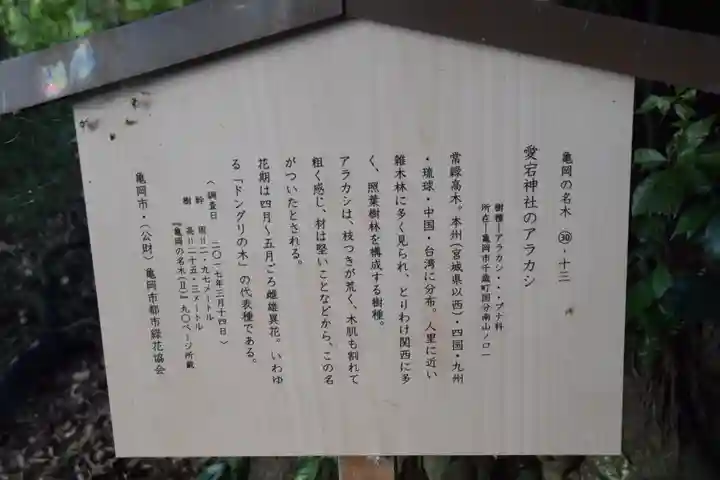 亀岡の名木 ㉚・十三
愛宕神社のアラカシ
樹種ーアラカシ・・・ブナ科
所在ー亀岡市千歳町国分南山ノ口一
常緑高木。本州(宮城県以西)・四国・九州
・琉球・中国・台湾に分布。人里に近い
雑木林に多く見られ、とりわけ関西に多
く、照葉樹林を構成する樹種。
アラカシは、枝つきが荒く、木肌も割れて
粗く感じ、材は堅いことなどから、この名
がついたとされる。
花期は四月〜五月ごろ雌雄異花。いわゆ
る「ドングリの木」の代表種である。
〈調査日 二〇一七年三月十四日〉
幹 周=二・九七メートル
樹 高=二十五・三メートル
『亀岡の名木(Ⅱ)』九〇ページ所載
亀岡市・(公財)亀岡市都市緑花協会